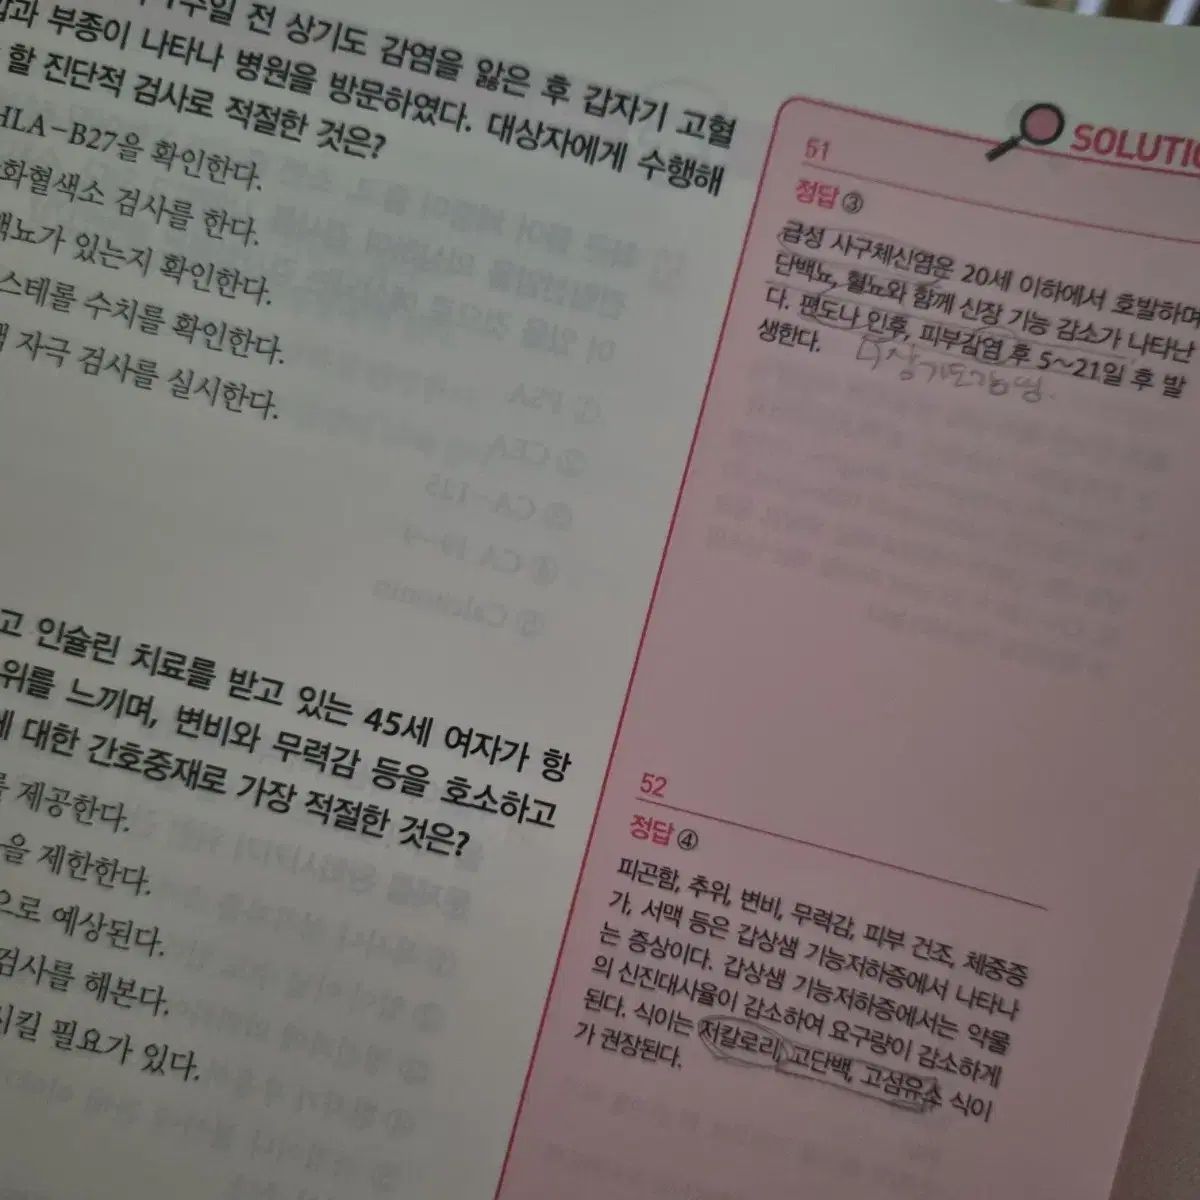 일 전 상기도 감염을 앓은 후 갑자기 고혈
과 부종이 나타나 병원을 방문하였다. 대상자에게 수행해
할 진단적 검사로 적절한 것은?
HLA-B27을 확인한다.
화혈색소 검사를 한다.
백뇨가 있는지 확인한다.
스테롤 수치를 확인한다.
자극 검사를 실시한다.
고 인슐린 치료를 받고 있는 45세 여자가 항
위를 느끼며, 변비와 무력감 등을 호소하고
대한 간호중재로 가장 적절한 것은?
를 제공한다.
을 제한한다.
으로 예상된다.
검사를 해본다.
시킬 필요가 있다.
SOLUTIO
51
정답 ③
급성 사구체신염은 20세 이하에서 호발하며
단백뇨, 혈뇨와 함께 신장 기능 감소가 나타난
다. 편도나 인후, 피부감염 후 5~21일 후 발
생한다.
상기도감염.
52
정답 ④
피곤함, 추위, 변비, 무력감, 피부 건조, 체중증
가, 서맥 등은 갑상샘 기능저하증에서 나타나
는 증상이다. 갑상샘 기능저하증에서는 약물
의 신진대사율이 감소하여 요구량이 감소하게
된다. 식이는 저칼로리, 고단백, 고섬유소 식이
가 권장된다.